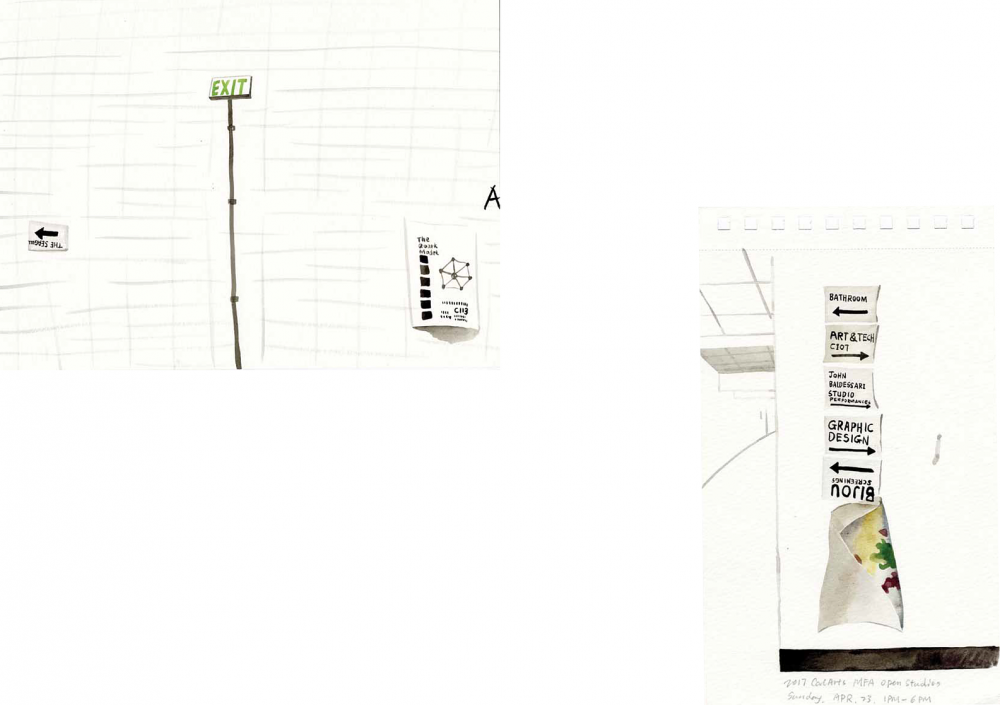 EXIT
A
THE
The
C113
BATHROOM
ART & TECH
C107
JOHN
BALDESSARI
STUDIO
PERFORMANCES
GRAPHIC
DESIGN
BIJOU
SCREENINGS
2017 CalArts MFA Open Studios
Sunday, APR, 23, 1PM-6PM